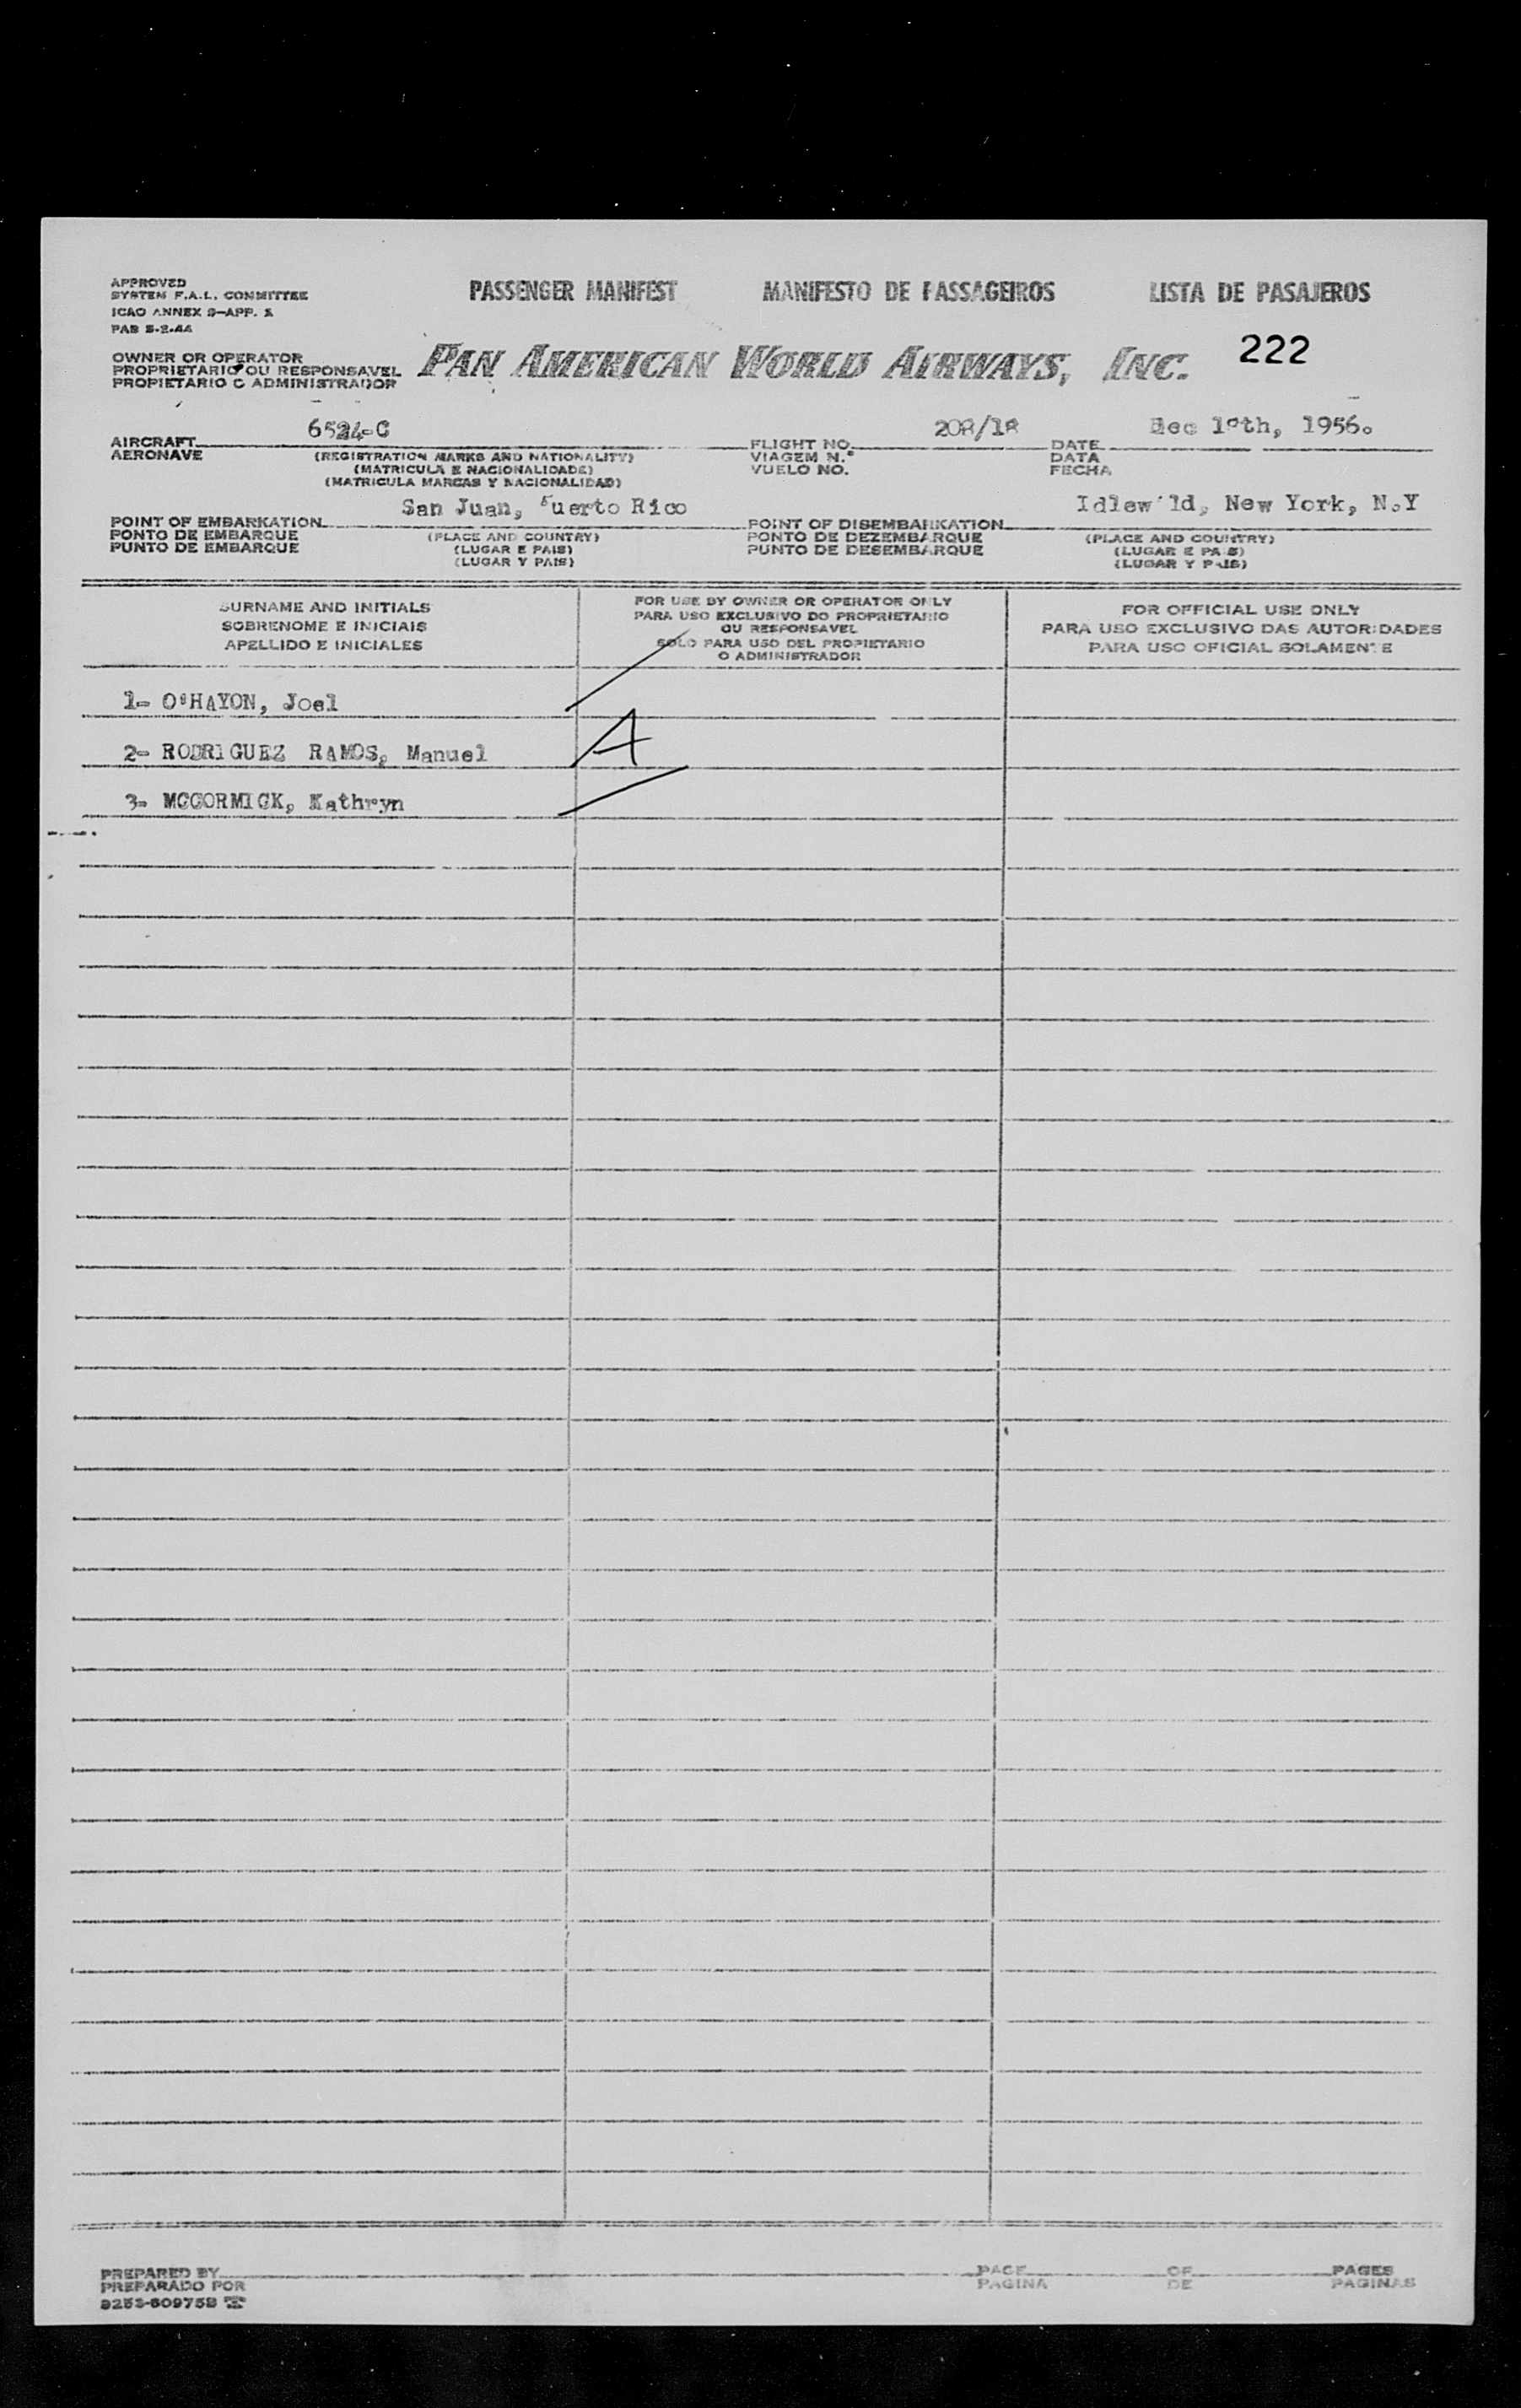 APPROVED
SYSTEM F.A.L. COMMITTEE
ICAO ANNEX 9-APP. 
PASSENGER MANIFEST MANIFESTO DE PASSAGEIROS LISTA DE PASAJEROS
OWNER OR OPERATOR
PROPRIETARIO OU RESPONSAVEL
PROPIETARIO O ADMINISTRADOR
PAN AMERICAN WORLD AIRWAYS, INC. 222
AIRCRAFT 6524-C FLIGHT NO. DATE 1956.
AERONAVE VIAGEM N.º DATA
(REGISTRATION MARKS AND NATIONALITY) VUELO NO. FECHA
(MATRICULA E NACIONALIDADE)
(MATRICULA MARCAS Y NACIONALIDAD)
POINT OF EMBARKATION San Juan, Puerto Rico POINT OF DISEMBARKATION Idlew'ld, New York, N.Y
PONTO DE EMBARQUE (PLACE AND COUNTRY) PONTO DE DEZEMBARQUE (PLACE AND COUNTRY)
PUNTO DE EMBARQUE (LUGAR E PAIS) PUNTO DE DESEMBARQUE (LUGAR E PAIS)
(LUGAR Y PAIS) (LUGAR Y PAIS)
SURNAME AND INITIALS
SOBRENOME E INICIAIS
APELLIDO E INICIALES
FOR USE BY OWNER OR OPERATOR ONLY
PARA USO EXCLUSIVO DO PROPRIETARIO
OU RESPONSAVEL
SOLO PARA USO DEL PROPIETARIO
O ADMINISTRADOR
FOR OFFICIAL USE ONLY
PARA USO EXCLUSIVO DAS AUTORIDADES
PARA USO OFICIAL SOLAMENTE
1- O'HAYON, Joel
2- RODRIGUEZ RAMOS, Manuel A
3- MCCORMICK, Kathryn
PREPARED BY PAGE OF PAGES
PREPARADO POR PAGINA DE PAGINAS
9253-609758